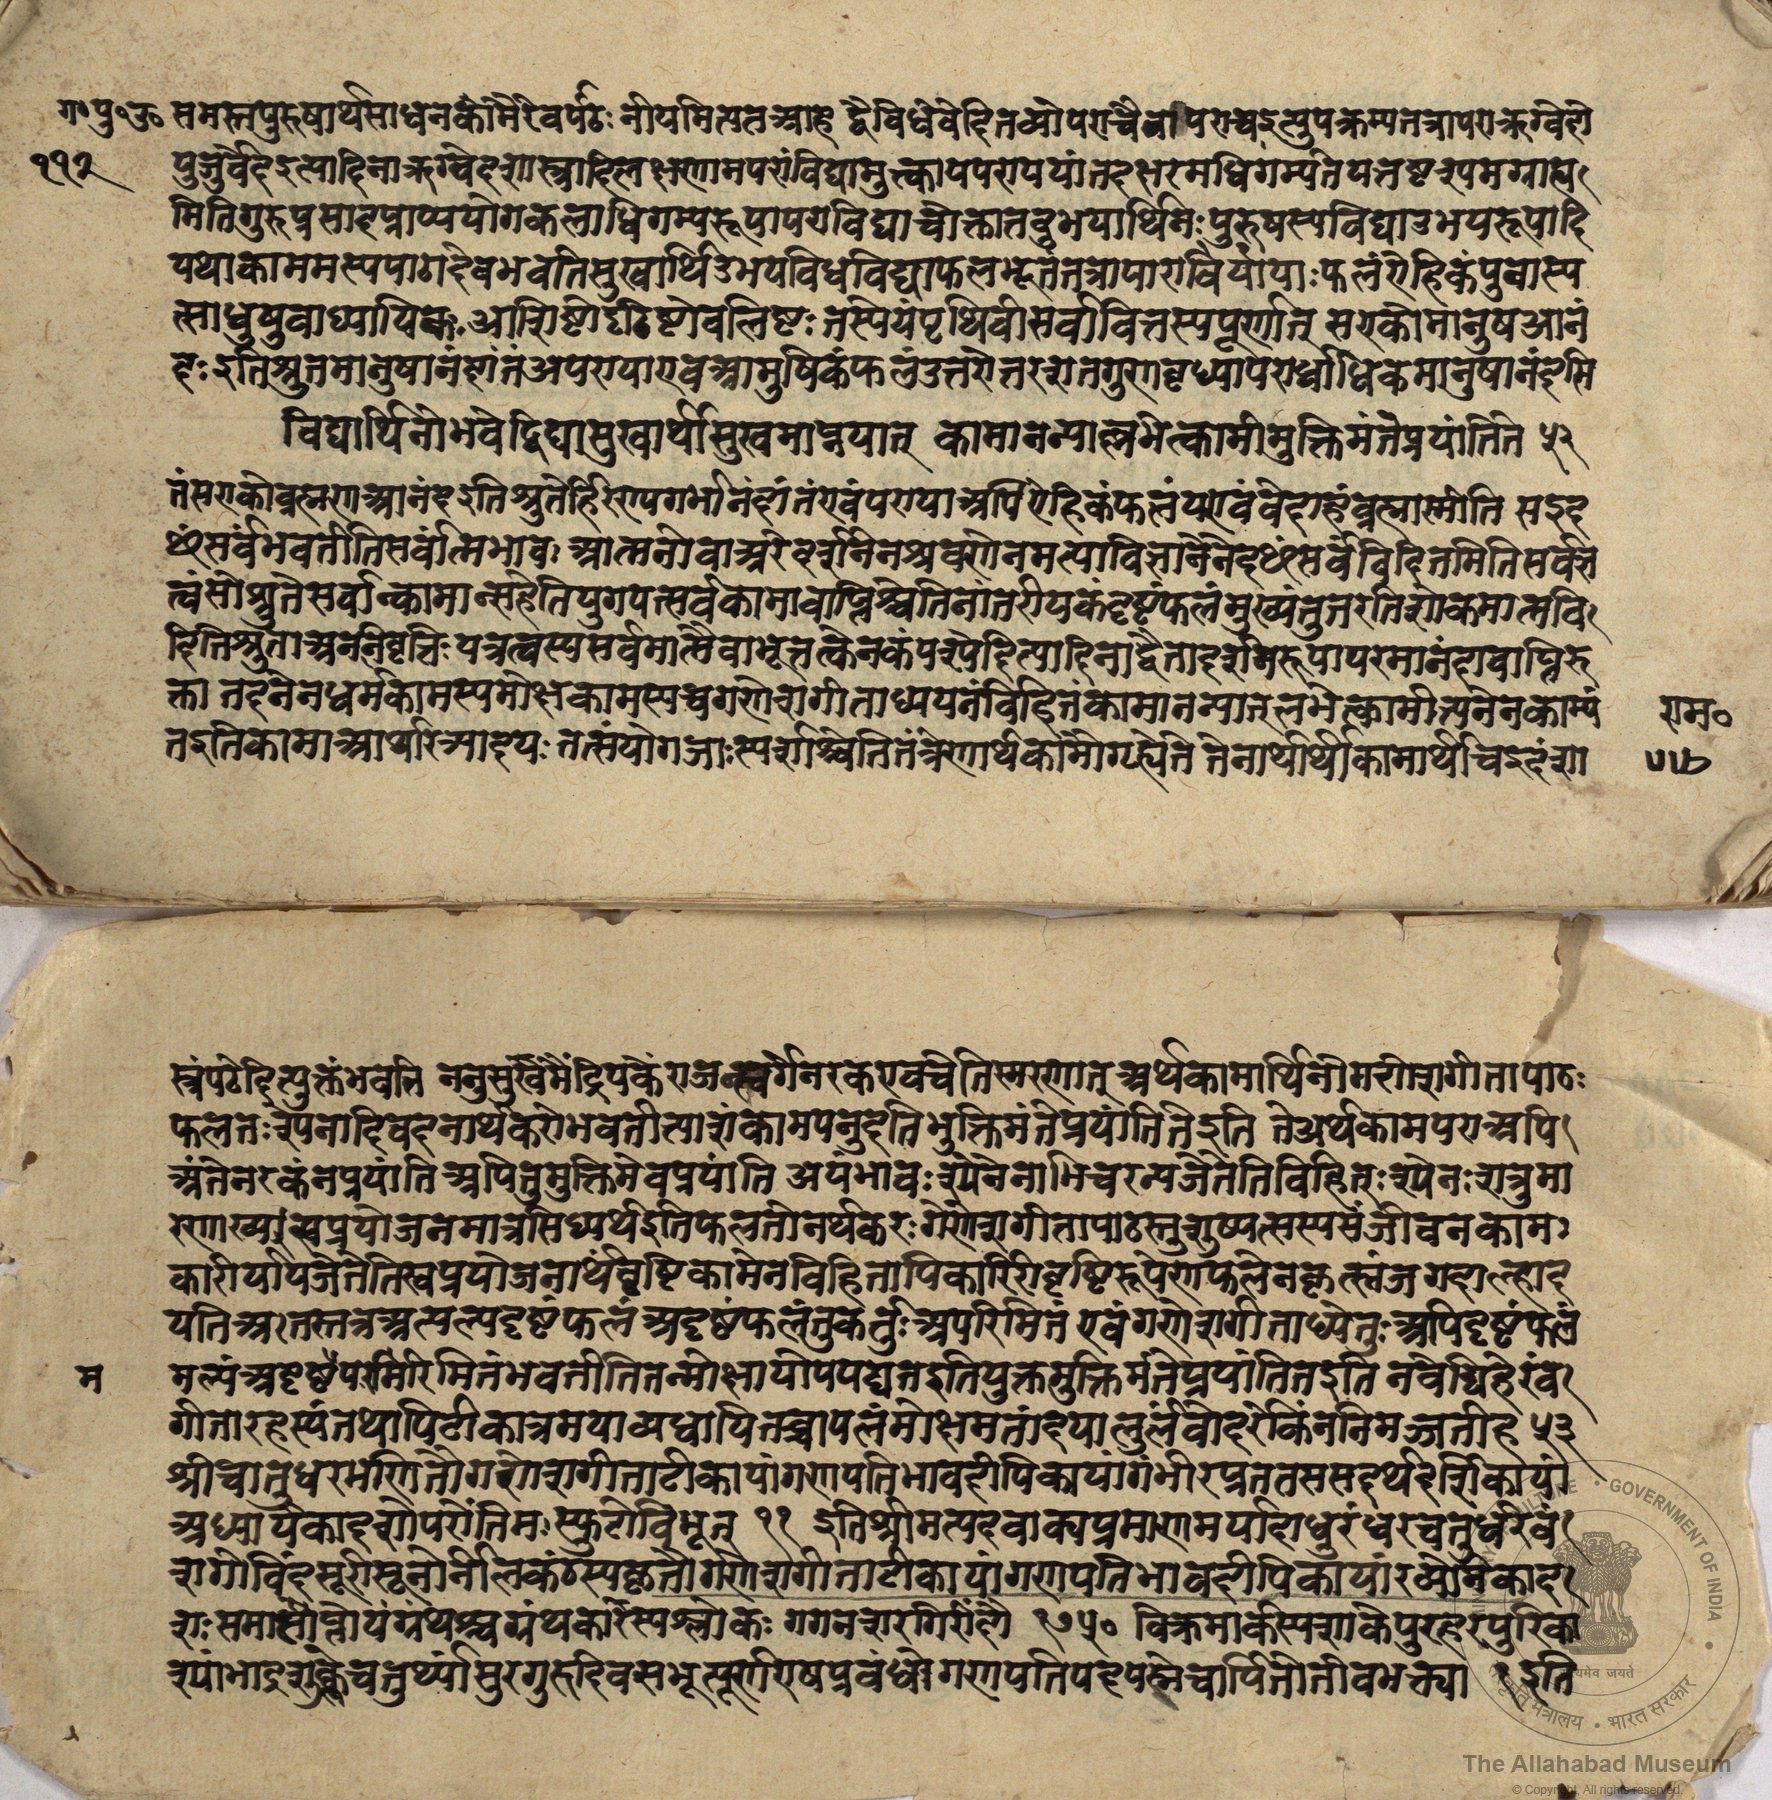 ग॰पु॰उ॰ समस्तपुरुषार्थसाधनकामैरेवपठनीयमित्यत आह द्वे विद्येवेदितव्येपराचैवापराचइत्युपक्रम्यतत्रापराऋग्वेदो
११२ यजुर्वेदइत्यादिनाऋग्वेदशास्त्रादिलक्षणामपरांविद्यामुक्त्वाथपराययातदक्षरमधिगम्यतेयत्तद्दृश्यमग्राह्य
मितिगुरुप्रसादप्राप्ययोगकलाधिगम्यरूपापराविद्याचोक्तातदुभयार्थिनः पुरुषस्यविद्याउभयरूपादि
यथाकाममस्यपाठादेवभवतिसुखार्थिउभयविधविद्याफलभूतंतत्रापराविद्यायाः फलंऐहिकंयुवास्य
त्साधुयुवाध्यायिकः आशिष्टोदृढिष्टोबलिष्टः तस्येयंपृथिवीसर्वावित्तस्यपूर्णास्यात् सएकोमानुषआनं
दः इतिश्रुतमानुषानंदांतंअपरायाएवआमुष्मिकंफलंउत्तरोत्तरशतगुणवृध्या
विद्यार्थिनोभवेद्विद्यासुखार्थीसुखमाप्नुयात् कामानन्यान्लभेत्कामीमुक्तिमंतेप्रयांतिते ५२
तंसएकोब्रह्मणआनंदइतिश्रुतेर्हिरण्यगर्भानंदांतंएवंपरायाअपिऐहिकंफलंयएवंवेदाहंब्रह्मास्मीति सइद
ꣳसर्वंभवतीतिसर्वात्मभावः आत्मनोवाअरेदर्शनेनश्रवणेनमत्याविज्ञानेनेदꣳसर्वंविदितमितिसर्वज्ञ
त्वंसोश्नुतेसर्वान्कामान्सहेतियुगपत्सर्वकामावाप्तिश्चेतिनांतरीयकंदृष्टंफलंमुख्यंतुतरतिशोकमात्मवि
दितिश्रुता यत्रत्वस्यसर्वमात्मैवाभूत्तत्केनकंपश्येदित्यादिनाद्वैतादर्शनरूपापरमानंदावाप्तिरु
क्ता तदनेनधर्मकामस्यमोक्षकामस्यचगणेशगीताध्ययनंविहितंकामानन्यान्लभेत्कामीत्यनेनकाम्यं
तइतिकामाअर्थारित्यादयः तत्संयोगजाः स्पर्शाश्चेतितंत्रेणार्थकामौगृह्येते तेनार्थार्थीकामार्थीचेदंशा
राम॰
स्त्रंपठेदित्युक्तंभवति ननुसुखमैंद्रियकंराजन्स्वर्गेनरकएवचेतिस्मरणात् अर्थकामार्थिनोगणेशगीतापाठः
फलतः श्येनादिवदनर्थकरोभवतीत्याशंकामपनुदतिभुक्तिमंतेप्रयांतितेइति तेअर्थकामपराअपि
अंतेनरकंनप्रयांतिअपितुमुक्तिमेवप्रयांति अयंभावः श्येनेनाभिचरन्यजेतेतिविहितः श्येनः शत्रुमा
रणाख्यस्वप्रयोजनमात्रसिध्यर्थइतिफलतोनर्थकरः गणेशगीतापाठस्तुशुष्यत्सस्यसंजीवनकामः
कारीर्यायजेतेतिस्वप्रयोजनार्थंवृष्टिकामेनविहितापिकारीरीवृष्टिरूपेणफलेनकृत्स्नंजगदाल्हाद
यतिअतस्तत्रअत्यल्पदृष्टंफलंअदृष्टंफलंतुकर्तुः अपरिमितं एवंगणेशगीताध्येतुः अपिदृष्टंफलं
म मल्पंअदृष्टंअपरिमितंभवतीतितन्मोक्षायोपपद्यतइतियुक्तमुक्तिमंतेप्रयांतितइति नवेद्यिहेरंब
गीतारहस्यंतथापिटीकात्रमयाव्यधायितच्चापलंमोक्षमतांदयालुर्लंबोदरोकिंननिमज्जतीह ५३
श्रीचातुर्धरभणितौगणेशगीताटीकायांगणपतिभावदीपिकायांगंभीरप्रततसदर्थदर्शिकायां
अध्यायएकादशोपरोंतिमःस्फुटोविभूत् ११ इतिश्रीमत्पदवाक्यप्रमाणमर्यादाधुरंधरचतुर्धरवं
शगोविंदसूरीसूनोर्नीलकंठस्यकृतौगणेशगीताटीकायांगणपतिभावदीपिकायांएकाद
शः समाप्तोयंग्रंथश्चग्रंथकारस्यश्लोकः गगनशरगिरींदौ १७५० विक्रमार्कस्यशाकेपुरहरपुरिका
श्यांभाद्रशुक्लेचतुर्थ्यांसुरगुरुदिवसेभूत्पूर्णएषप्रबंधोगणपतिपदपद्मेचार्पितोतीवभक्त्या १ इति
GOVERNMENT OF INDIA
सत्यमेव जयते
संस्कृति मंत्रालय • भारत सरकार
The Allahabad Museum
© Copyright, All rights reserved.